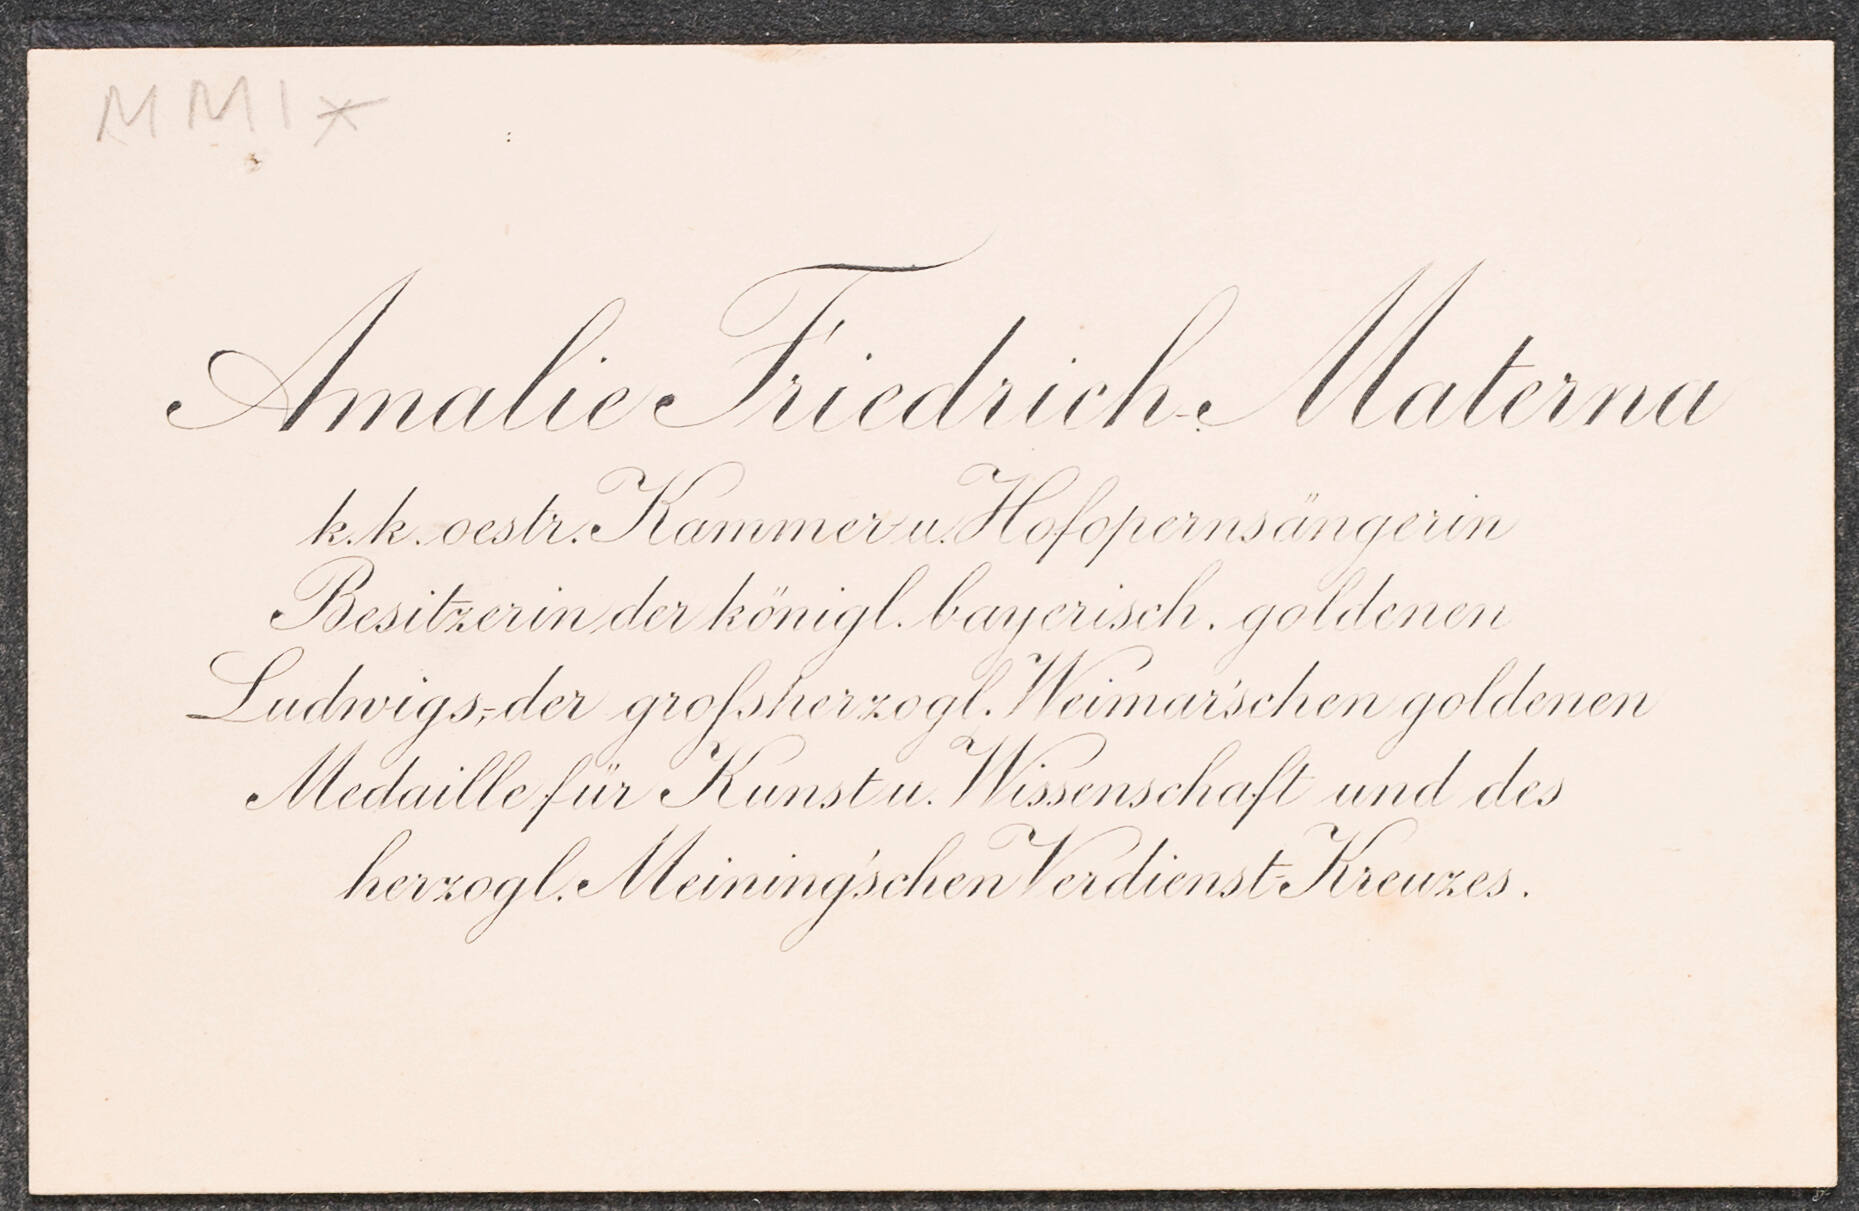 MMIX
Amalie Friedrich-Materna
k. k. oestr. Kammer u. Hofopernsängerin
Besitzerin der königl. bayerisch. goldenen
Ludwigs,-der grofsherzogl. Weimar'schen goldenen
Medaille für Kunst u. Wissenschaft und des
herzogl. Meining'schen Verdienst-Kreuzes.